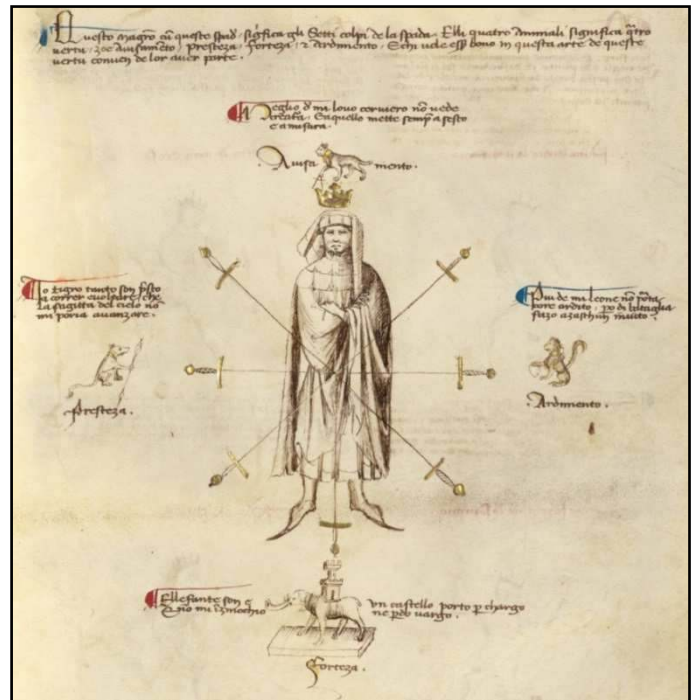 Questo magistro cū queste spade significa gli Setti colpi de la spada. Elli quatro animali significa q̄tro
vertu. zoe Avisamēto, presteza, forteza, & Ardimento. E chi vole esser bono in questa arte de queste
vertu conven de lor aver parte.
Meglio d' mi lovo cerviero nō vede
creat'a. Eaquello mette semp̄ a sesto
e a misura.
Avisa mento.
Io tigro tanto son p̄sto
a correr e voltare, che
la sagitta del cielo nō
mi poria avanzare.
Presteza.
Piu de mi leone nō porta
core ardito. po di bataglia
fazo a zaschun invito.
Ardimento.
Ellefante son e un castello porto p chargo
E no mi inzinochio ne perdo vargo.
Forteza.